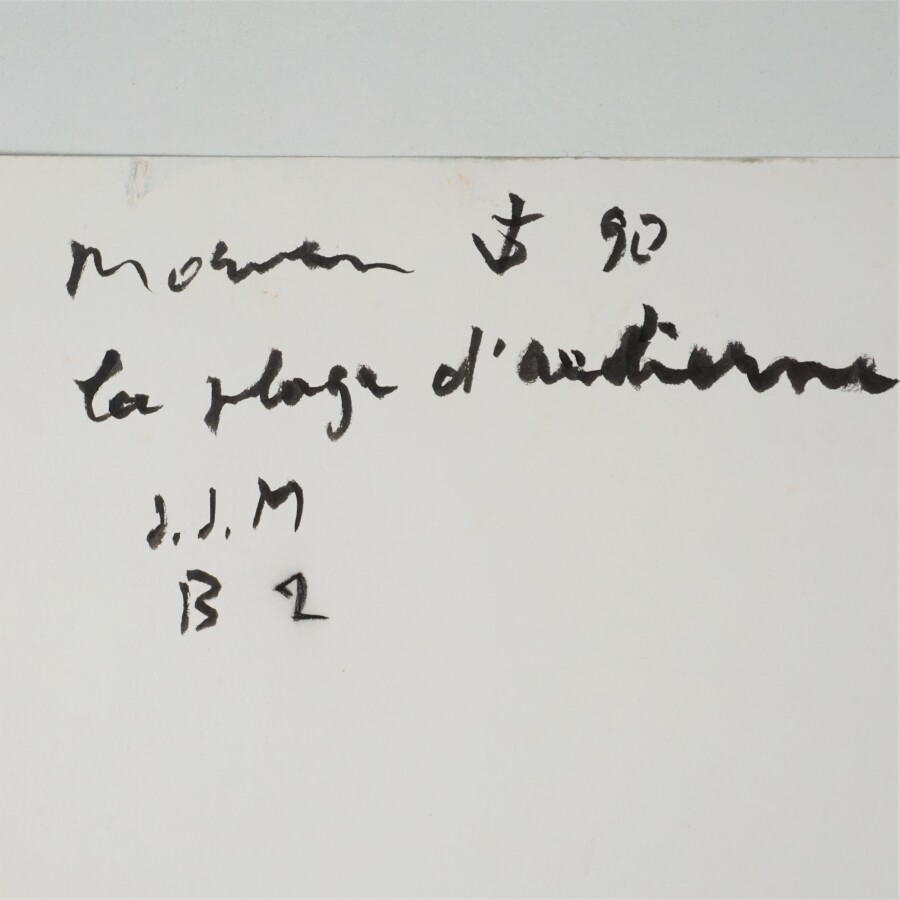 Morvan ⚓ 90
la plage d'audierne
J.J.M
B 2